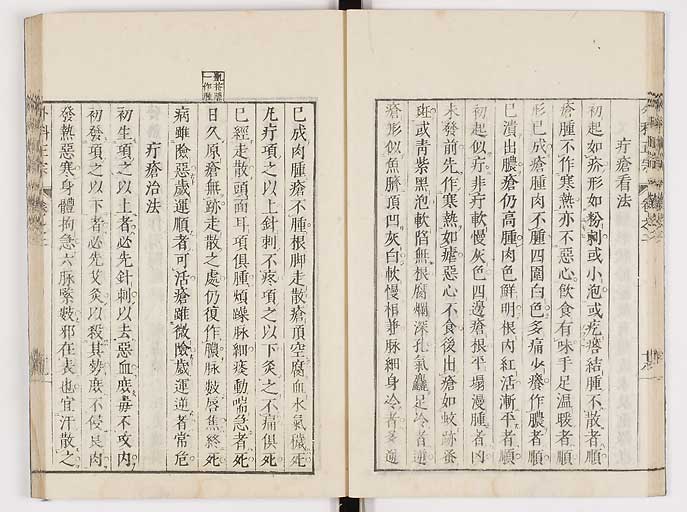 疔瘡看法
初起如疥形如粉刺或小泡或疙瘩結腫不散者順
瘡腫不作寒熱亦不惡心飲食有味手足溫暖者順
形已成瘡腫肉不腫四圍白色多痛少癢作膿者順
已潰出膿瘡仍高腫肉色鮮明根內紅活漸平者順
初起似疔非疔軟慢灰色四邊瘡根平塌漫腫者
未發前先作寒熱如瘧惡心不食後出瘡如蚊跡蚤
斑或青紫黑泡軟陷無根腐爛深孔氣麤足冷者逆
瘡形似魚臍頂凹灰白軟慢相兼脉細身冷者多逆
已成肉腫瘡不腫根脚走散瘡頂空腐血水氣穢死
凡疔項之以上針刺不疼項之以下灸之不痛俱死
已經走散頭面耳項俱腫煩躁脉細痰動喘急者死
日久原瘡無跡走散之處仍復作膿脉數唇焦終死
病雖險惡歲運順者可活瘡雖微險歲運逆者常危
疔瘡治法
初生項之以上者必先針刺以去惡血庶毒不攻內
初發項之以下者必先艾灸以殺其勢庶不侵良肉
發熱惡寒身體拘急六脉緊數邪在表也宜汗散之
外科正宗